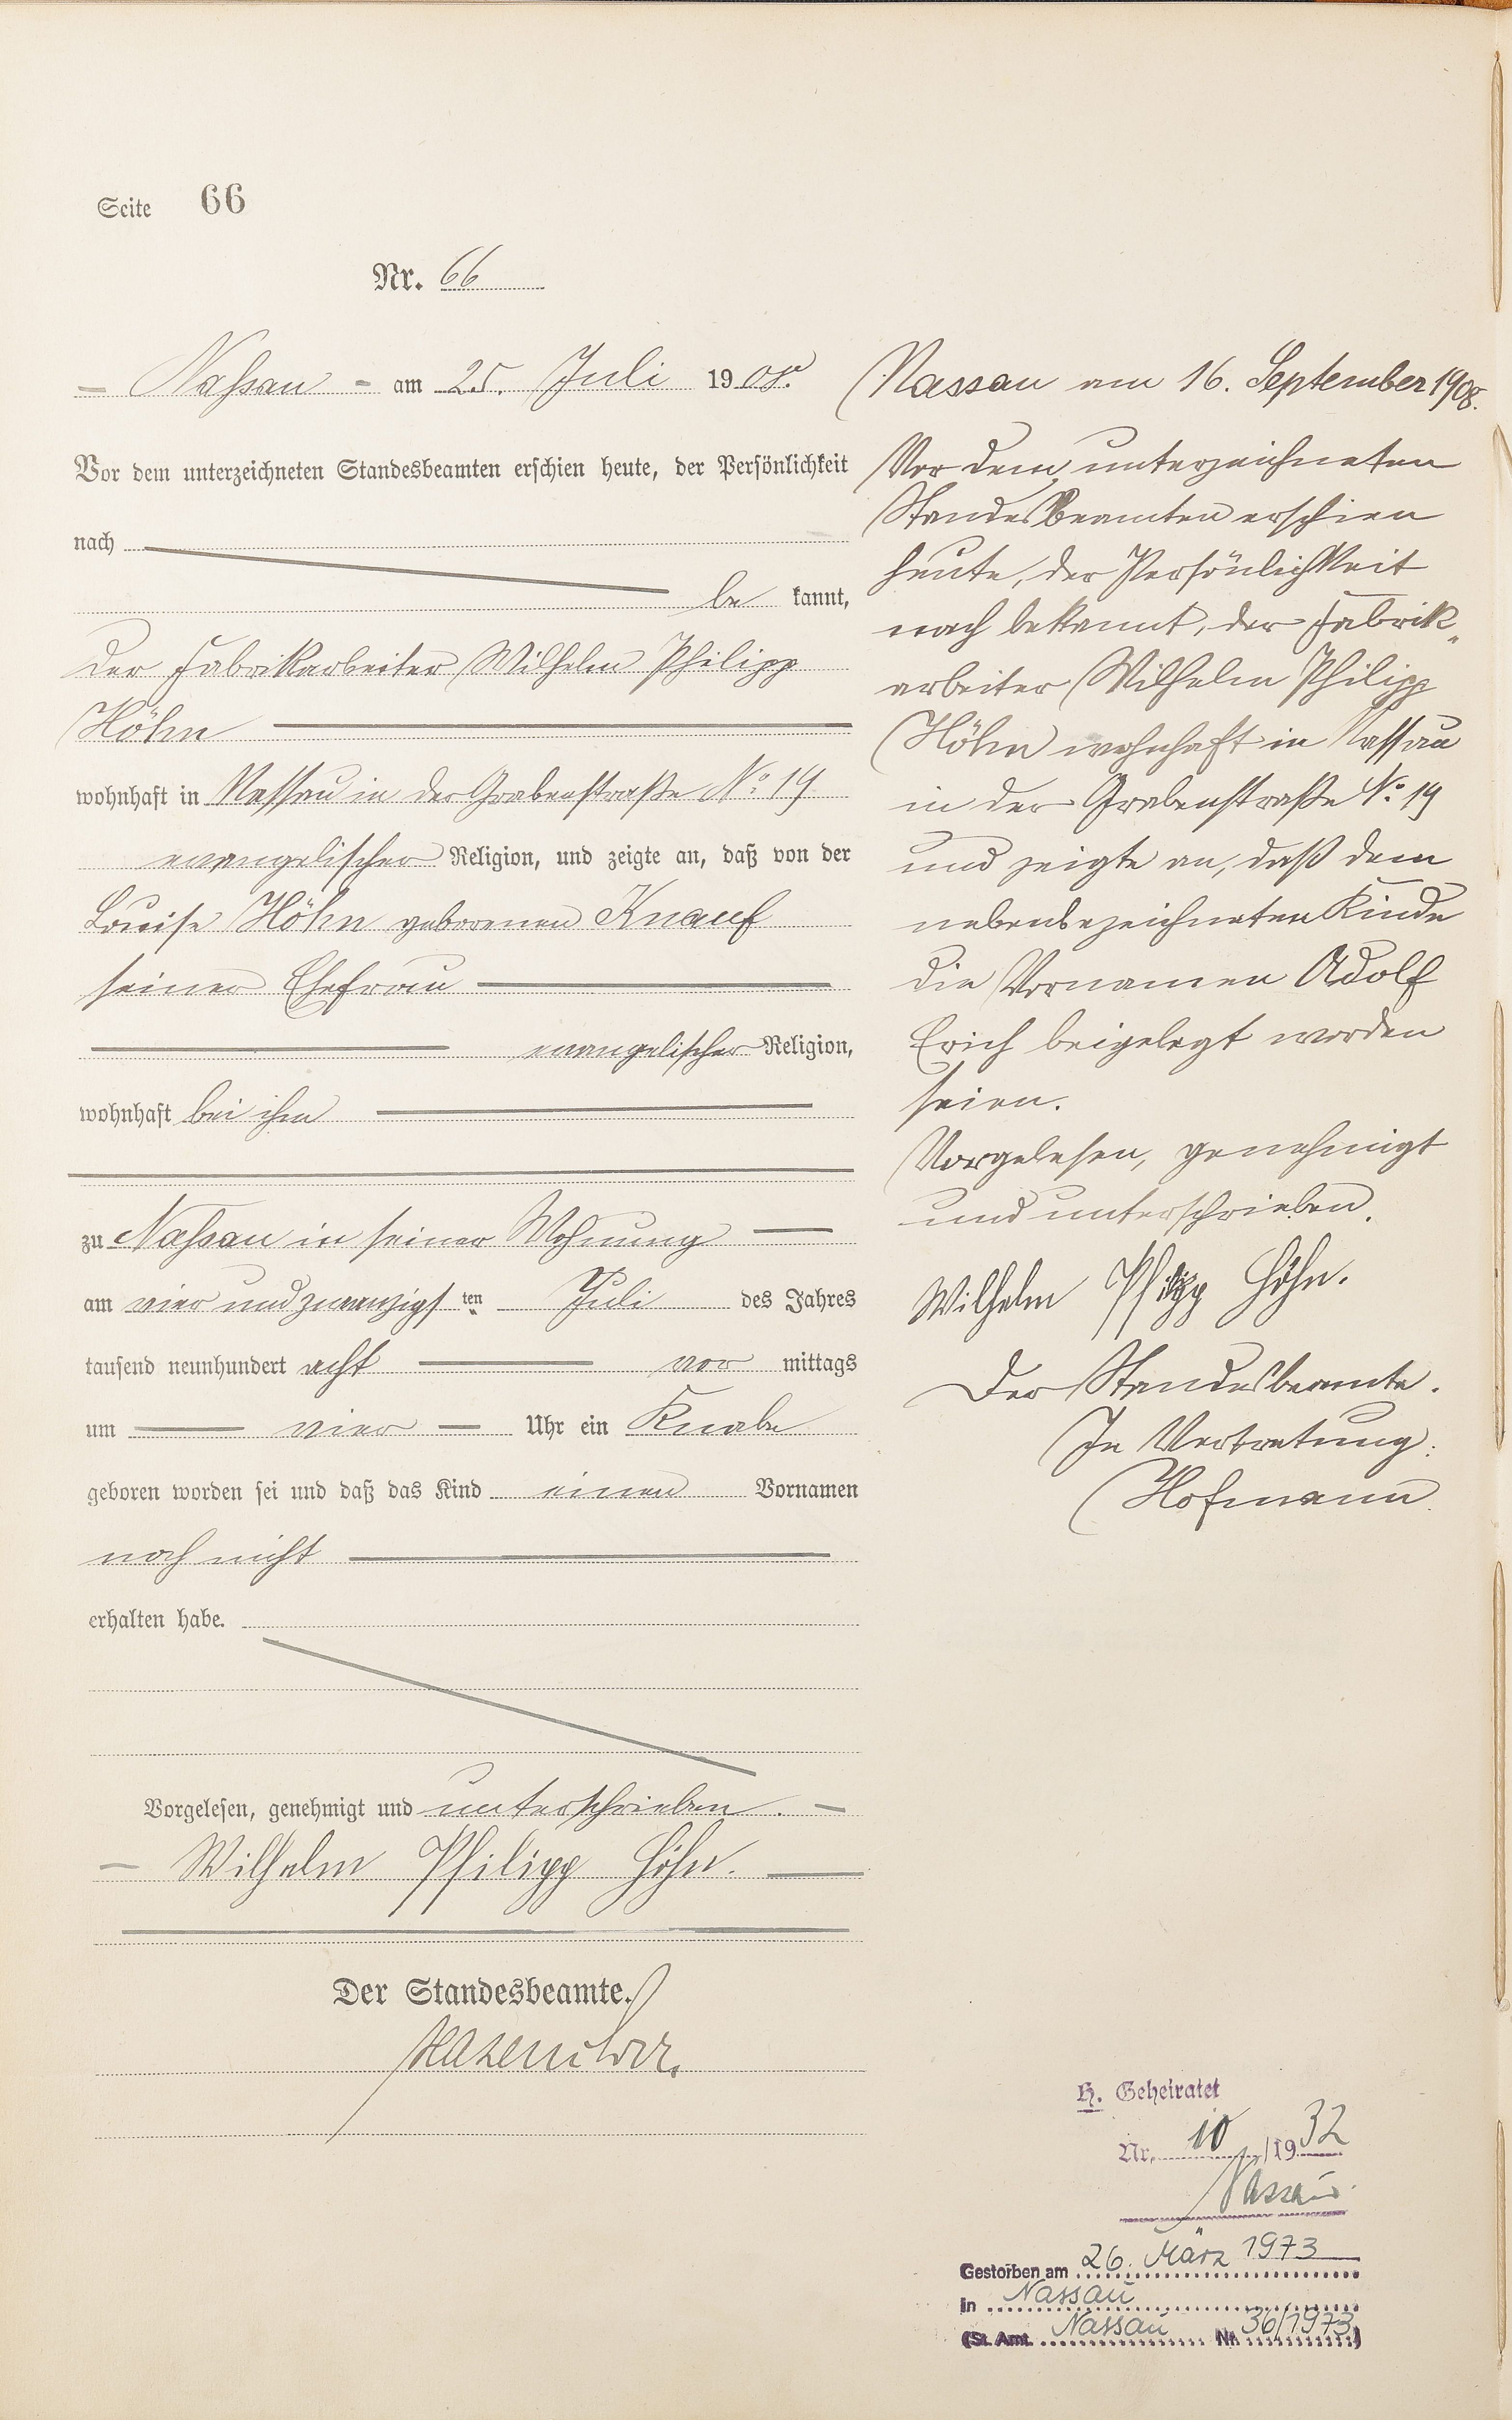 Seite 66
Nr. 66
Nassau am 25. Juli 1908.
Vor dem unterzeichneten Standesbeamten erschien heute, der Persönlichkeit
nach
be kannt,
der Fabrikarbeiter Wilhelm Philipp
Höhn
wohnhaft in Nassau in der Grabenstraße No 19
evangelischer Religion, und zeigte an, daß von der
Louise Höhn geborenen Knauf
seiner Ehefrau
evangelischer Religion,
wohnhaft bei ihm
zu Nassau in seiner Wohnung
am vier und zwanzigsten Juli des Jahres
tausend neunhundert acht vor mittags
um vier Uhr ein Knabe
geboren worden sei und daß das Kind einen Vornamen
noch nicht
erhalten habe.
Vorgelesen, genehmigt und unterschrieben.
Wilhelm Philipp Höhn.
Der Standesbeamte.
Nassau am 16. September 1908.
Vor dem unterzeichneten
Standesbeamten erschien
heute, der Persönlichkeit
nach bekannt, der Fabrik-
arbeiter Wilhelm Philipp
Höhn wohnhaft in Nassau
in der Grabenstraße No 19
und zeigte an, daß dem
nebenbezeichneten Kinde
die Vornamen Adolf
Erich beigelegt worden
seien.
Vorgelesen, genehmigt
und unterschrieben.
Wilhelm Philipp Höhn.
Der Standesbeamte.
In Vertretung:
Hofmann
H. Geheiratet
Nr. 10/1932
Nassau
Gestorben am 26. März 1973
in Nassau
(St. Amt. Nassau Nr. 36/1973)